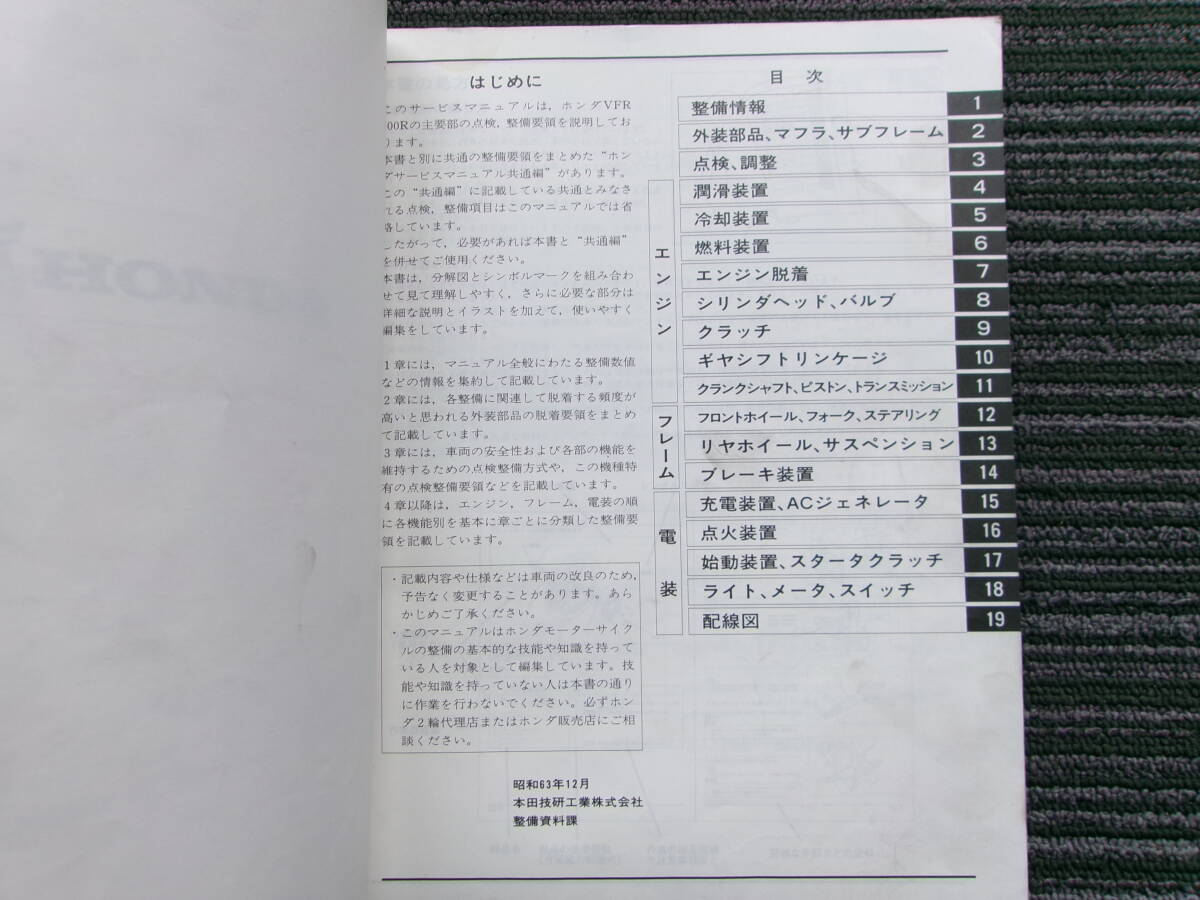 はじめに
このサービスマニュアルは，ホンダVFR
00Rの主要部の点検，整備要領を説明してお
ります。
本書と別に共通の整備要領をまとめた“ホン
ダサービスマニュアル共通編”があります。
この“共通編”に記載している共通とみなさ
れる点検，整備項目はこのマニュアルでは省
略しています。
したがって，必要があれば本書と“共通編”
を併せてご使用ください。
本書は，分解図とシンボルマークを組み合わ
せて見て理解しやすく，さらに必要な部分は
詳細な説明とイラストを加えて，使いやすく
編集をしています。
1章には，マニュアル全般にわたる整備数値
などの情報を集約して記載しています。
2章には，各整備に関連して脱着する頻度が
高いと思われる外装部品の脱着要領をまとめ
て記載しています。
3章には，車両の安全性および各部の機能を
維持するための点検整備方式や，この機種特
有の点検整備要領などを記載しています。
4章以降は，エンジン，フレーム，電装の順
に各機能別を基本に章ごとに分類した整備要
領を記載しています。
・記載内容や仕様などは車両の改良のため，
予告なく変更することがあります。あら
かじめご了承ください。
・このマニュアルはホンダモーターサイク
ルの整備の基本的な技能や知識を持って
いる人を対象として編集しています。技
能や知識を持っていない人は本書の通り
に作業を行わないでください。必ずホン
ダ2輪代理店またはホンダ販売店にご相
談ください。
昭和63年12月
本田技研工業株式会社
整備資料課
目次
整備情報 1
外装部品、マフラ、サブフレーム 2
点検、調整 3
エンジン
潤滑装置 4
冷却装置 5
燃料装置 6
エンジン脱着 7
シリンダヘッド、バルブ 8
クラッチ 9
ギヤシフトリンケージ 10
クランクシャフト、ピストン、トランスミッション 11
フレーム
フロントホイール、フォーク、ステアリング 12
リヤホイール、サスペンション 13
ブレーキ装置 14
電装
充電装置、ACジェネレータ 15
点火装置 16
始動装置、スタータクラッチ 17
ライト、メータ、スイッチ 18
配線図 19